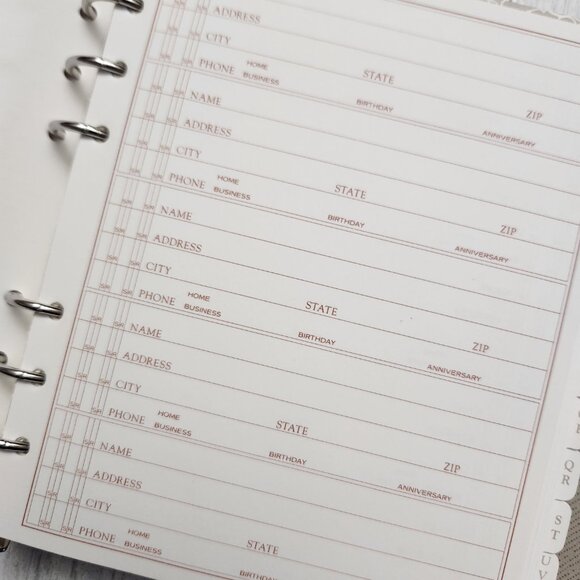 ADDRESS
CITY STATE ZIP
PHONE HOME
BUSINESS BIRTHDAY ANNIVERSARY
NAME
ADDRESS
CITY STATE ZIP
PHONE HOME
BUSINESS BIRTHDAY ANNIVERSARY
NAME
ADDRESS
CITY STATE ZIP
PHONE HOME
BUSINESS BIRTHDAY ANNIVERSARY
NAME
ADDRESS
CITY STATE ZIP
PHONE HOME
BUSINESS BIRTHDAY ANNIVERSARY
NAME
ADDRESS
CITY STATE
PHONE HOME
BUSINESS BIRTHDAY
Q
R
S
T
U
V